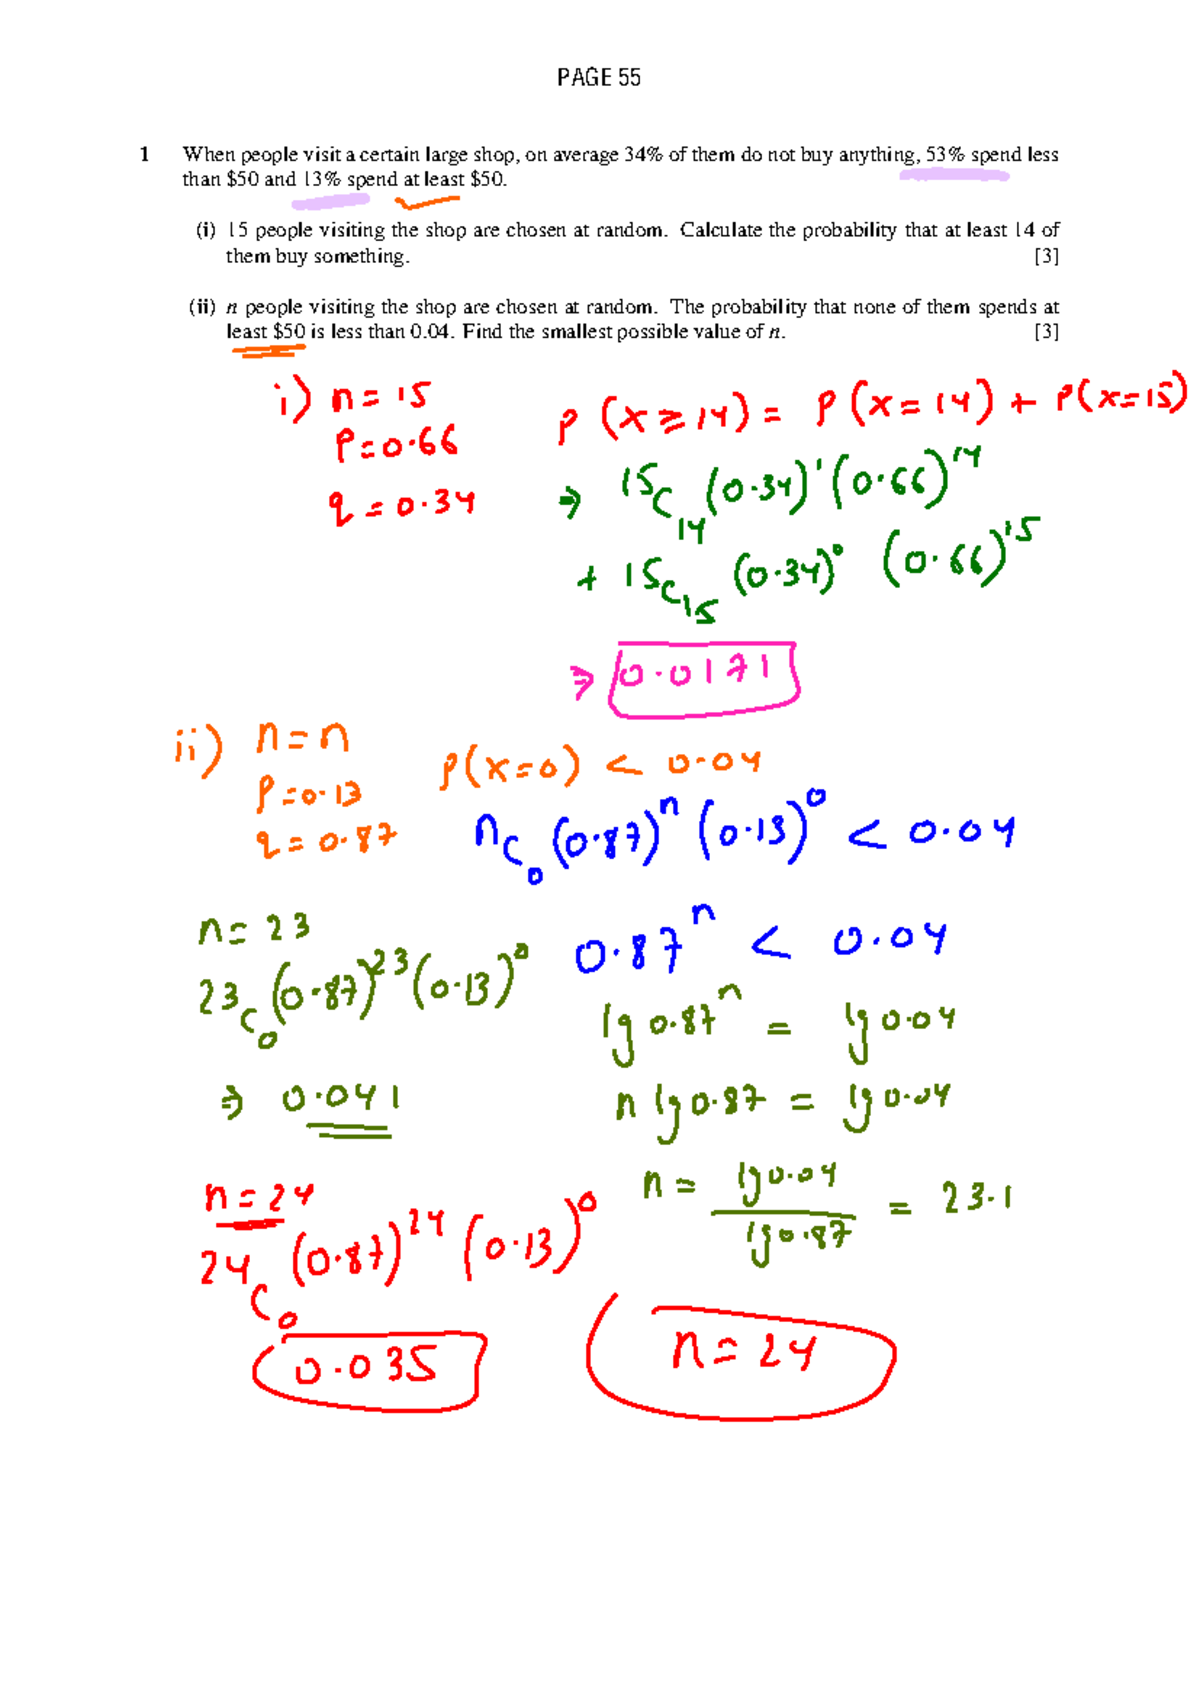 PAGE 55
1 When people visit a certain large shop, on average 34% of them do not buy anything, 53% spend less
than $50 and 13% spend at least $50.
(i) 15 people visiting the shop are chosen at random. Calculate the probability that at least 14 of
them buy something. [3]
(ii) n people visiting the shop are chosen at random. The probability that none of them spends at
least $50 is less than 0.04. Find the smallest possible value of n. [3]
i) n = 15
P = 0.66
q = 0.34
P (x ≥ 14) = P (x = 14) + P(x = 15)
⇒ 15C14 (0.34)^1 (0.66)^14
+ 15C15 (0.34)^0 (0.66)^15
⇒ 0.0171
ii) n = n
P = 0.13
q = 0.87
P(x = 0) < 0.04
nC0 (0.87)^n (0.13)^0 < 0.04
0.87^n < 0.04
lg 0.87^n = lg 0.04
n lg 0.87 = lg 0.04
n = lg 0.04 / lg 0.87 = 23.1
n = 23
23C0 (0.87)^23 (0.13)^0
⇒ 0.041
n = 24
24C0 (0.87)^24 (0.13)^0
0.035
n = 24